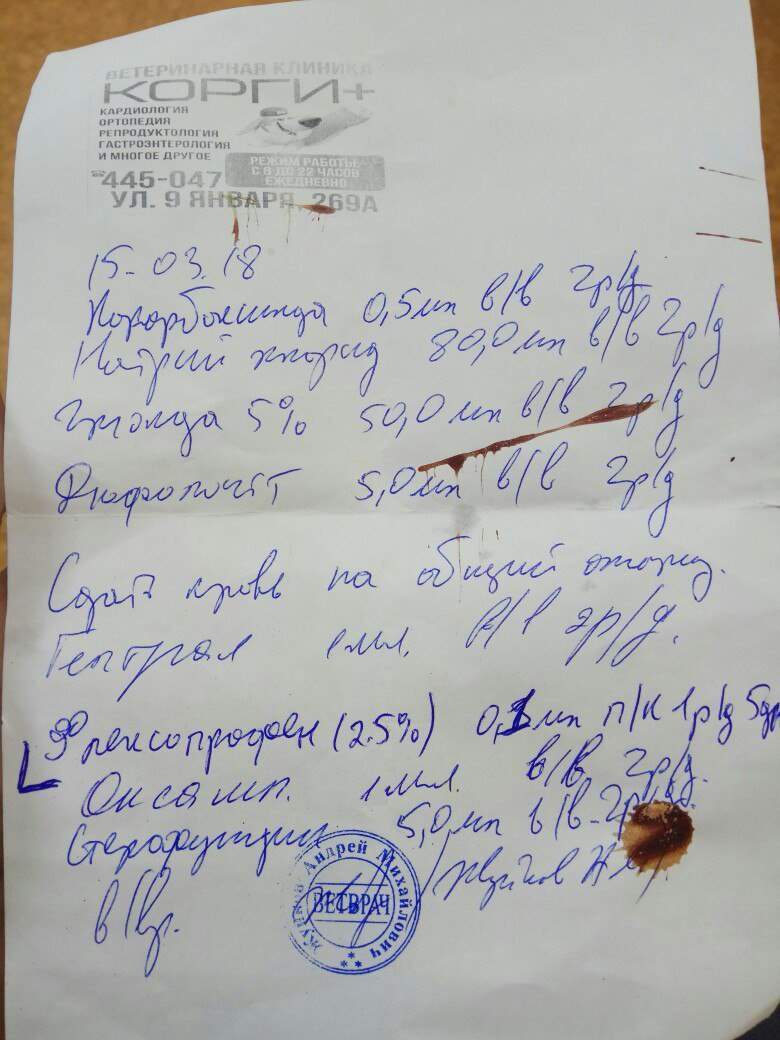 ВЕТЕРИНАРНАЯ КЛИНИКА
КОРГИ+
КАРДИОЛОГИЯ
ОРТОПЕДИЯ
РЕПРОДУКТОЛОГИЯ
ГАСТРОЭНТЕРОЛОГИЯ
И МНОГОЕ ДРУГОЕ
РЕЖИМ РАБОТЫ:
С 8 ДО 22 ЧАСОВ
ЕЖЕДНЕВНО
☎445-047
УЛ. 9 ЯНВАРЯ, 269А
15.03.18
0,5мл в/в 2р/д
Натрий хлорид 80,0мл в/в 2р/д
5% 50,0мл в/в 2р/д
Дюфолайт 5,0мл в/в 2р/д
Сдать кровь на общий
Гептрал 1мл. в/в 2р/д.
Флексопрофен (2.5%) 0,1мл п/к 1р/д
Оксамп. 1мл. в/в 2р/д.
Стерофундин 5,0мл в/в 2р/д.
в/вр.
Андрей Михайлович
ВЕТВРАЧ